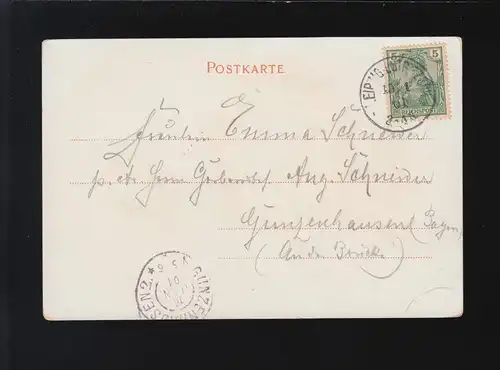 POSTKARTE
5
LEIPZIG
Fräulein Emma Schneider
p. adr. Herrn Gerbereibes. Aug. Schneider
Gunzenhausen (Bayern)
(An der Brücke)
GUNZENHAUSEN 2.
01